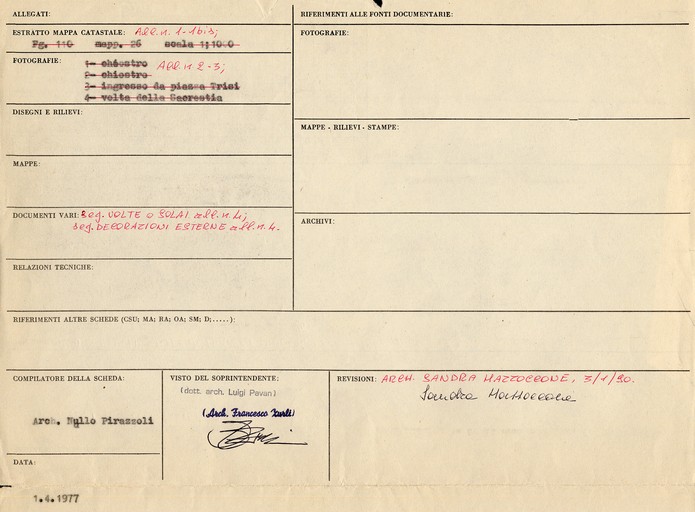 ALLEGATI:
ESTRATTO MAPPA CATASTALE: All. n. 1-1bis;
Fg. 110 mapp. 26 scala 1:1000
FOTOGRAFIE: 1- chiostro All. n 2-3;
2- chiostro
3- ingresso da piazza Trisi
4- volte della Sacrestia
DISEGNI E RILIEVI:
MAPPE:
DOCUMENTI VARI: Seg. VOLTE o SOLAI all. n. 4;
Seg. DECORAZIONI ESTERNE all. n. 4.
RELAZIONI TECNICHE:
RIFERIMENTI ALLE FONTI DOCUMENTARIE:
FOTOGRAFIE:
MAPPE - RILIEVI - STAMPE:
ARCHIVI:
RIFERIMENTI ALTRE SCHEDE (CSU; MA; RA; OA; SM; D;.....):
COMPILATORE DELLA SCHEDA:
Arch. Nullo Pirazzoli
DATA:
1.4.1977
VISTO DEL SOPRINTENDENTE:
(dott. arch. Luigi Pavan)
(Arch. Francesco Zurli)
REVISIONI: ARCH. SANDRA MAZZOCCONE, 3/1/90.
Sandra